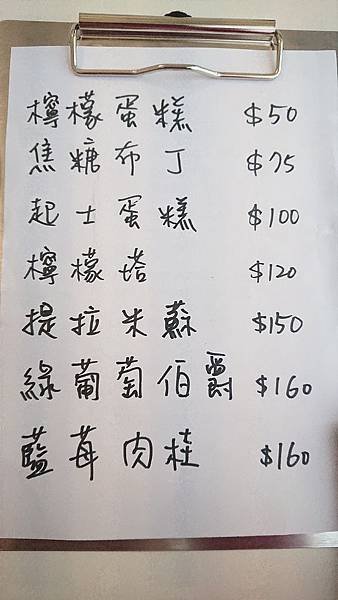 檸檬蛋糕 $50
焦糖布丁 $75
起士蛋糕 $100
檸檬塔 $120
提拉米蘇 $150
綠葡萄伯爵 $160
藍莓肉桂 $160